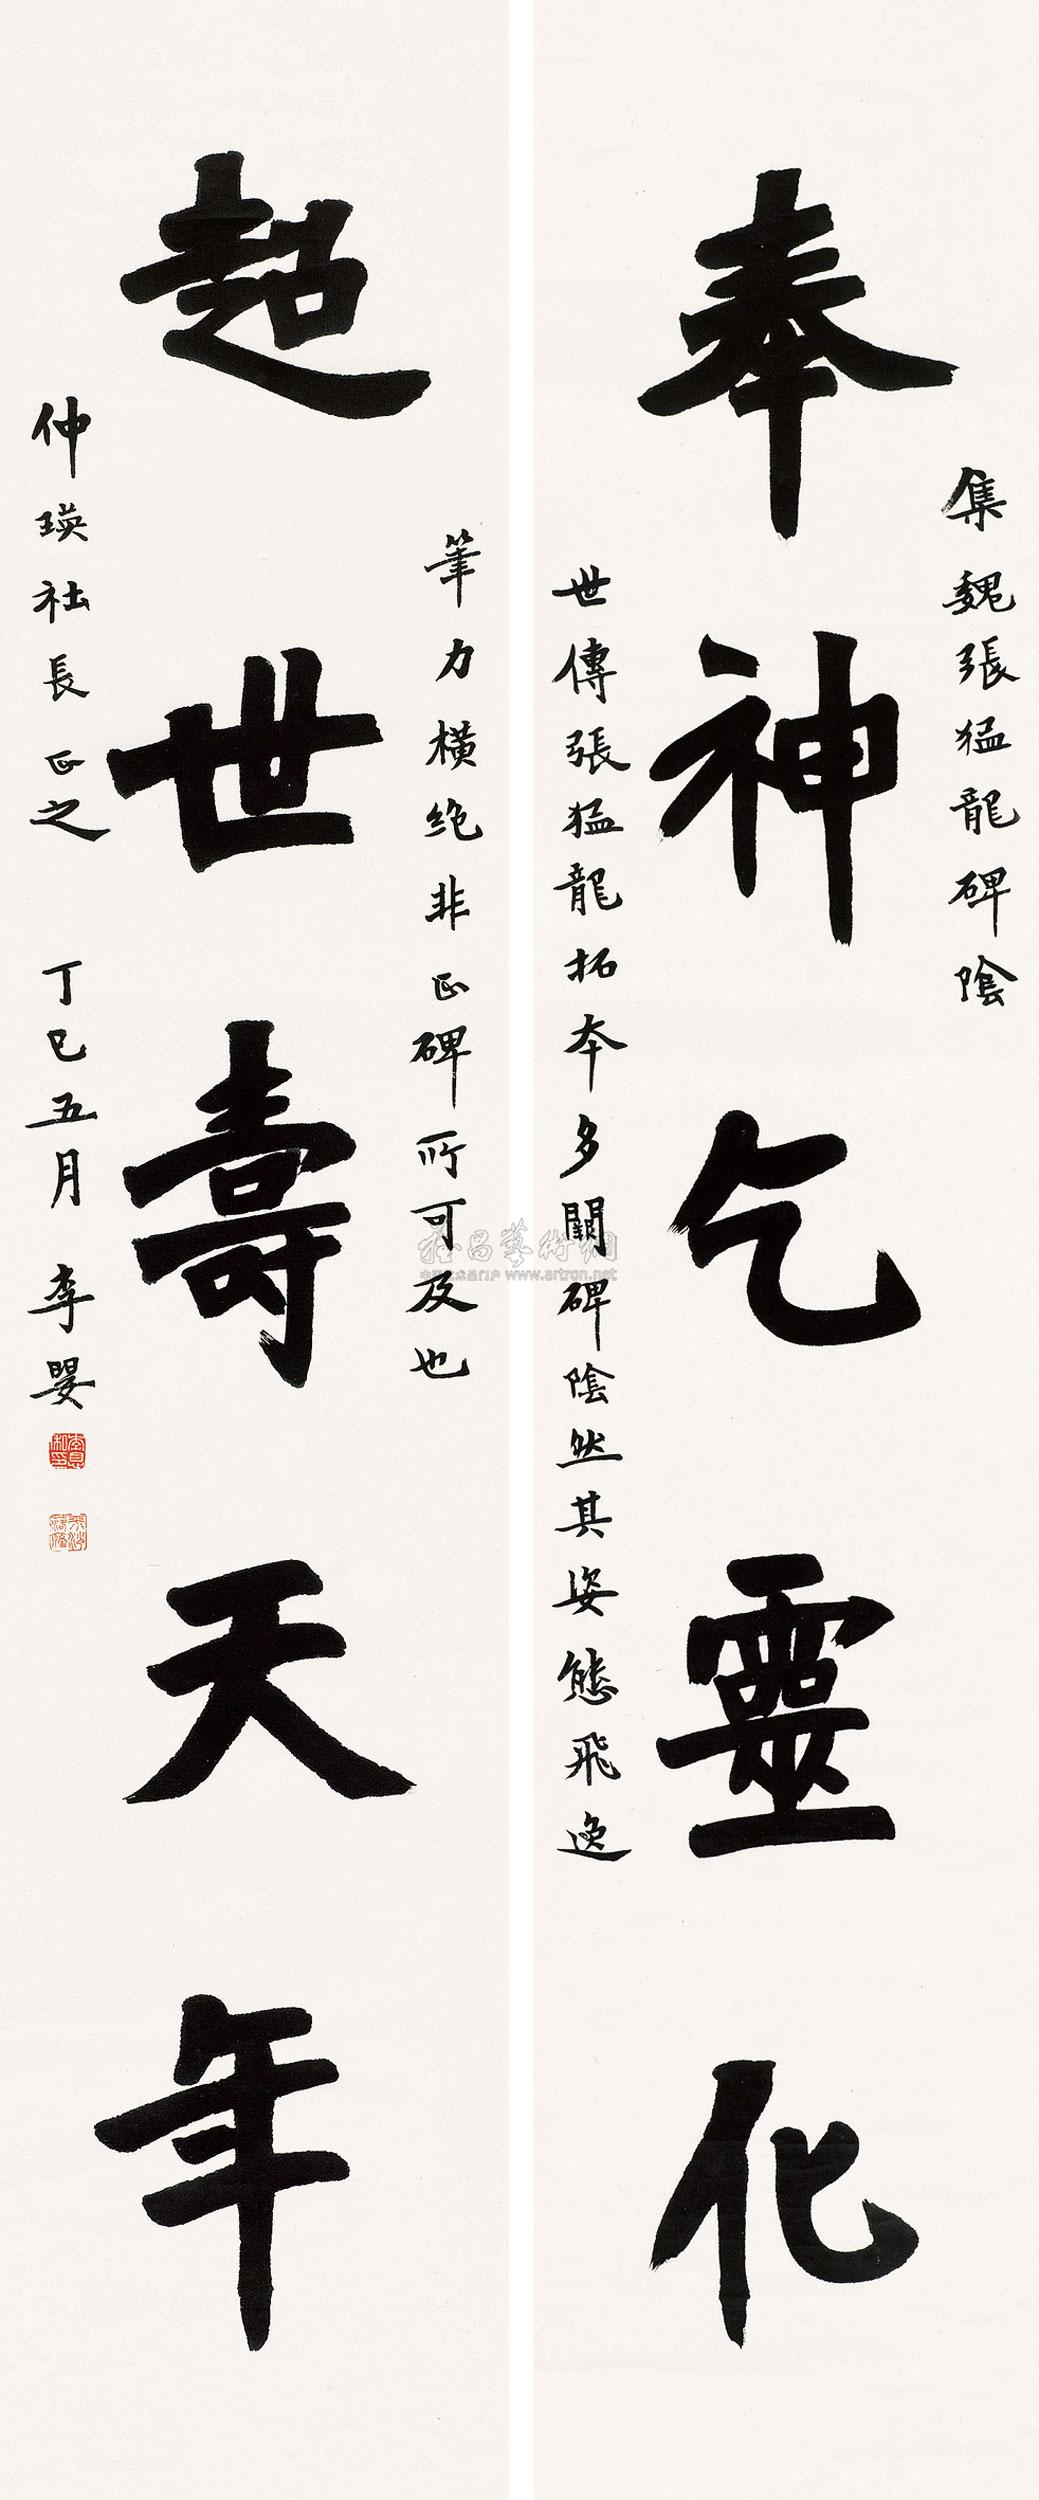 集魏張猛龍碑陰
奉神乞靈化
世傳張猛龍拓本多闕碑陰然其姿態飛逸
筆力橫絶非正碑所可及也
超世壽天年
仲瑛社長正之 丁巳五月 李瞿
www.artron.net